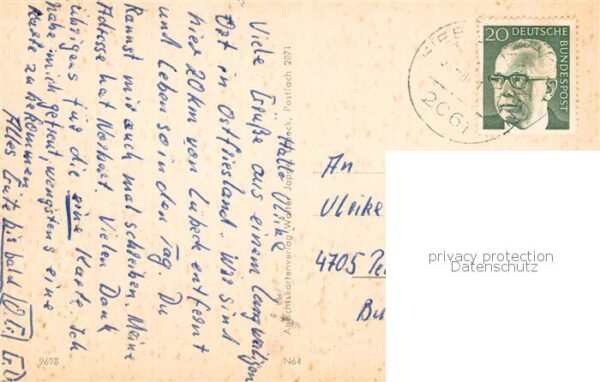 Hallo Ulrike
Viele Grüße aus einem langweiligen
Ort in Ostfriesland. Wir sind
hier 20 km von Lübeck entfernt
und Leben so in den Tag. Du
Kannst mir auch mal schreiben. Meine
Adresse hat Norbert. Vielen Dank
übrigens für die eine Karte. Ich
habe mich gefreut, wenigstens eine
Karte zu bekommen
Alles Gute bis bald
Ansichtskartenverlag Walter Jappe, Postfach 2071
9698
N61
20 DEUTSCHE
BUNDESPOST
2061
An
Ulrike
4705
privacy protection
Datenschutz